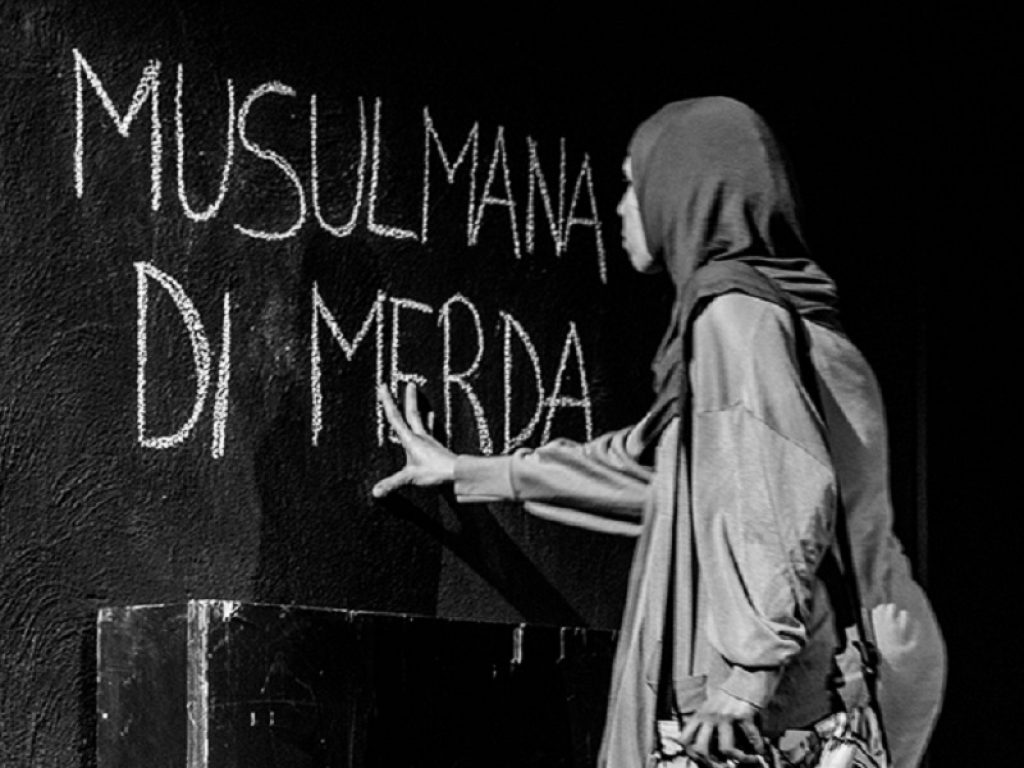 MUSULMANA
DI MERDA